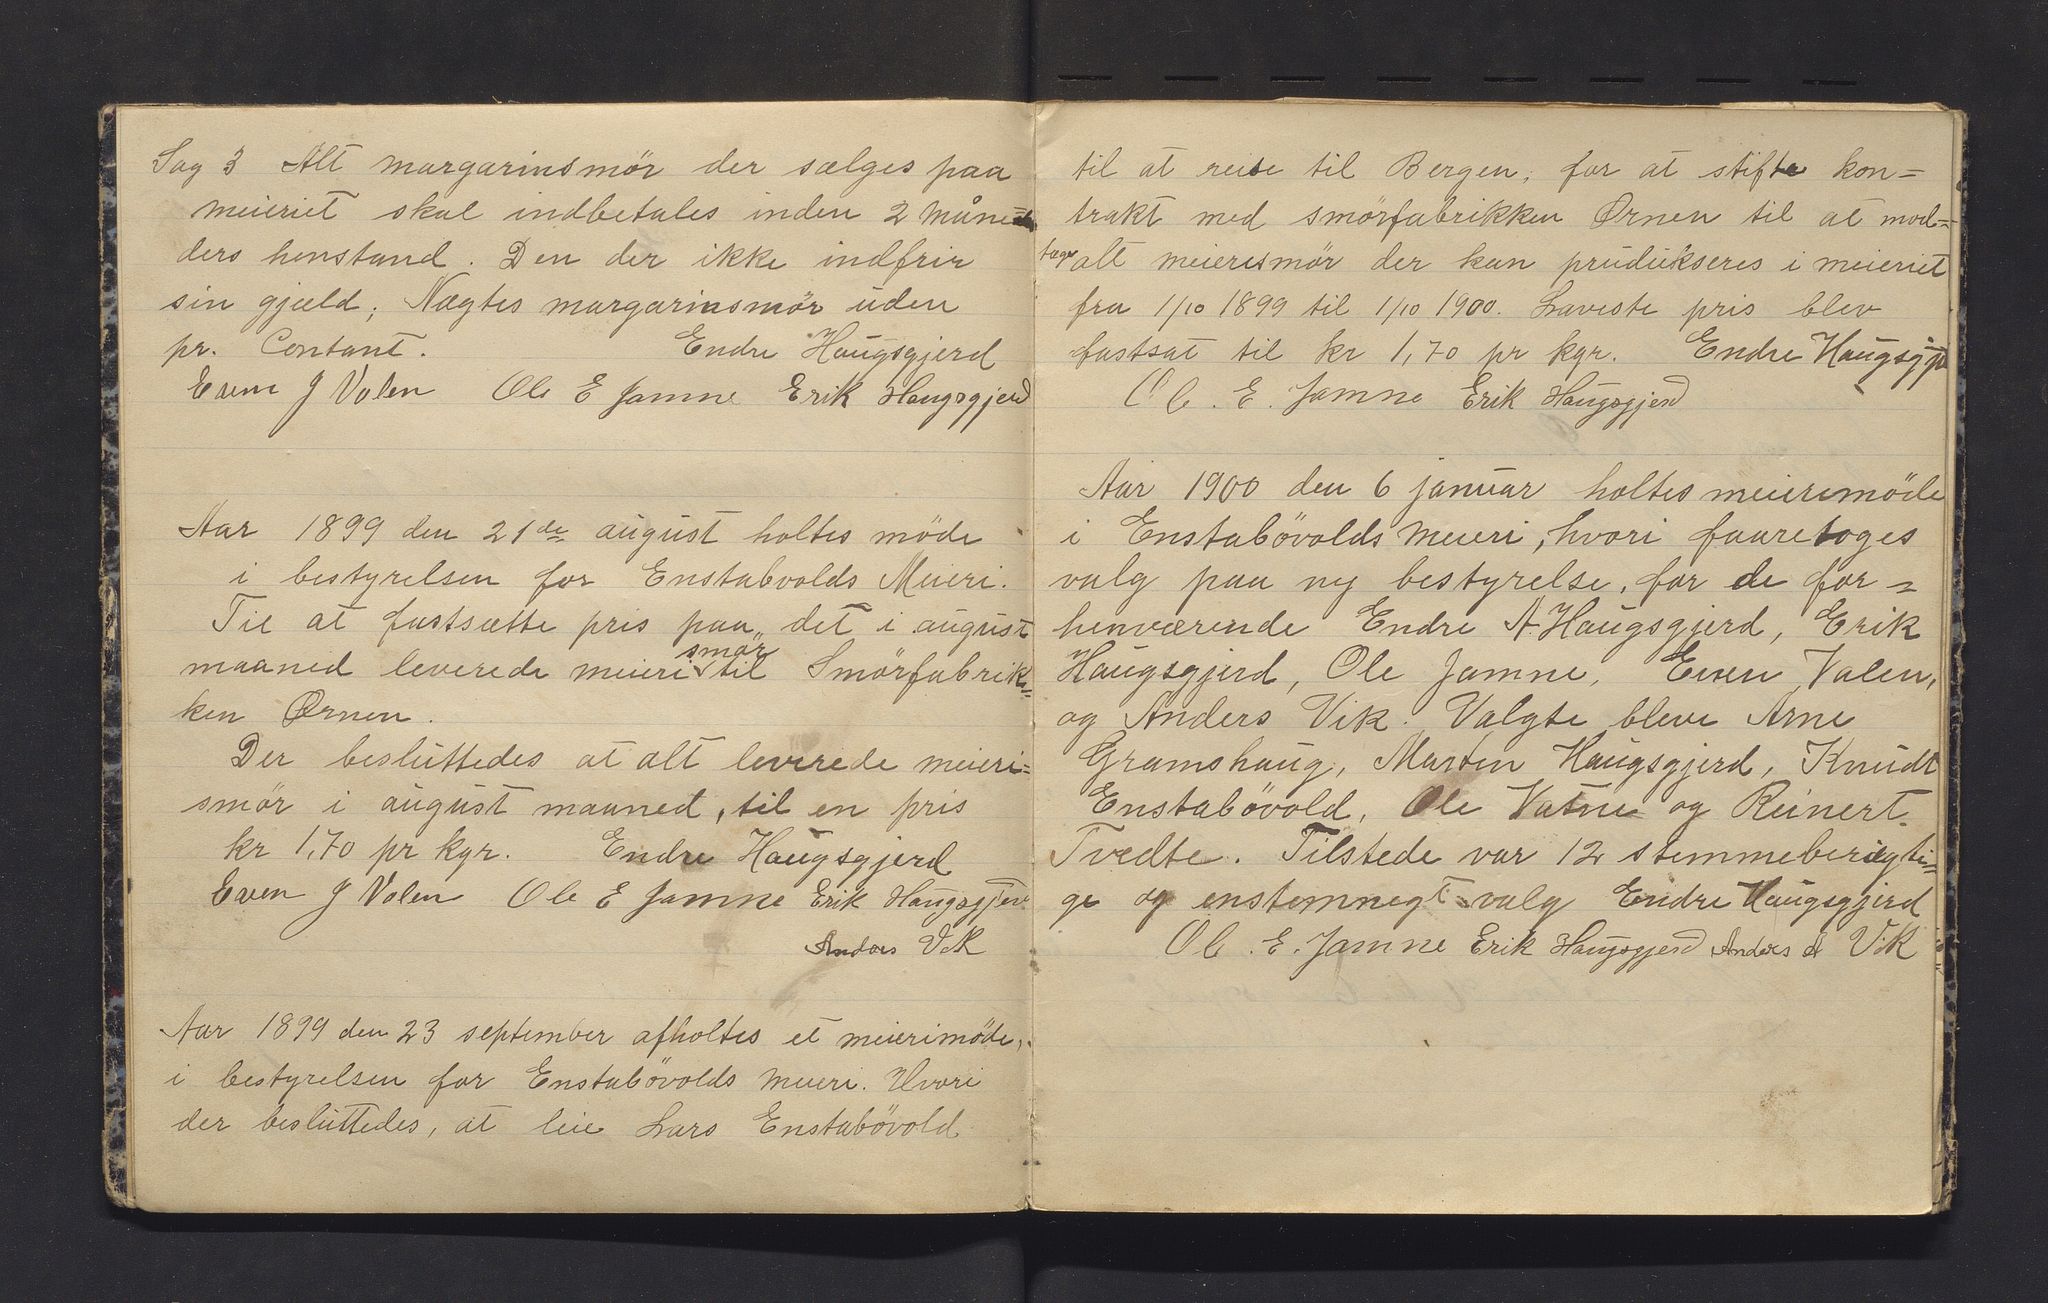 Sag 3 Alt margarinsmör der sælges paa
meieriet skal indbetales inden 2 måne
ders henstand. Den der ikke indfrir
sin gjæld; Nægtes margarinsmör uden
pr. Contant. Endre Haugsgjerd
Even J Valen Ole E Jamne Erik Haugsgjerd
Aar 1899 den 21de august holtes möde
i bestyrelsen for Enstabvolds Meieri.
Til at fastsætte pris paa det i august
smör
maaned leverede meieri til Smörfabrik-
ken Ørnen.
Der besluttedes at alt leverede meieri=
smör i august maaned, til en pris
kr 1,70 pr kgr. Endre Haugsgjerd
Even J Valen Ole E Jamne Erik Haugsgjerd
Anders Vik
Aar 1899 den 23 september afholtes et meierimöde,
i bestyrelsen for Enstabövolds meieri. Hvori
der besluttedes, at leie Lars Enstabövold
til at reise til Bergen, for at stifte kon=
trakt med smörfabrikken Ørnen til at mod=
tage alt meierismör der kan prudukseres i meieriet
fra 1/10 1899 til 1/10 1900. Laveste pris blev
fastsat til kr 1,70 pr kgr. Endre Haugsgje
Ole. E. Jamne Erik Haugsgjerd
Aar 1900 den 6 januar holtes meierimöde
i Enstabövolds meieri, hvori faaretoges
valg paa ny bestyrelse, for de for=
henværende Endre A. Haugsgjerd, Erik
Haugsgjerd, Ole Jamne, Even Valen,
og Anders Vik. Valgte bleve Arne
Gramshaug, Marten Haugsgjerd, Knudt
Enstabövold, Ole Vatne og Reinert
Tvedte. Tilstede var 12 stemmeberigti=
ge og enstemnegt valg Endre Haugsgjerd
Ole. E. Jamne Erik Haugsgjerd Anders A Vik